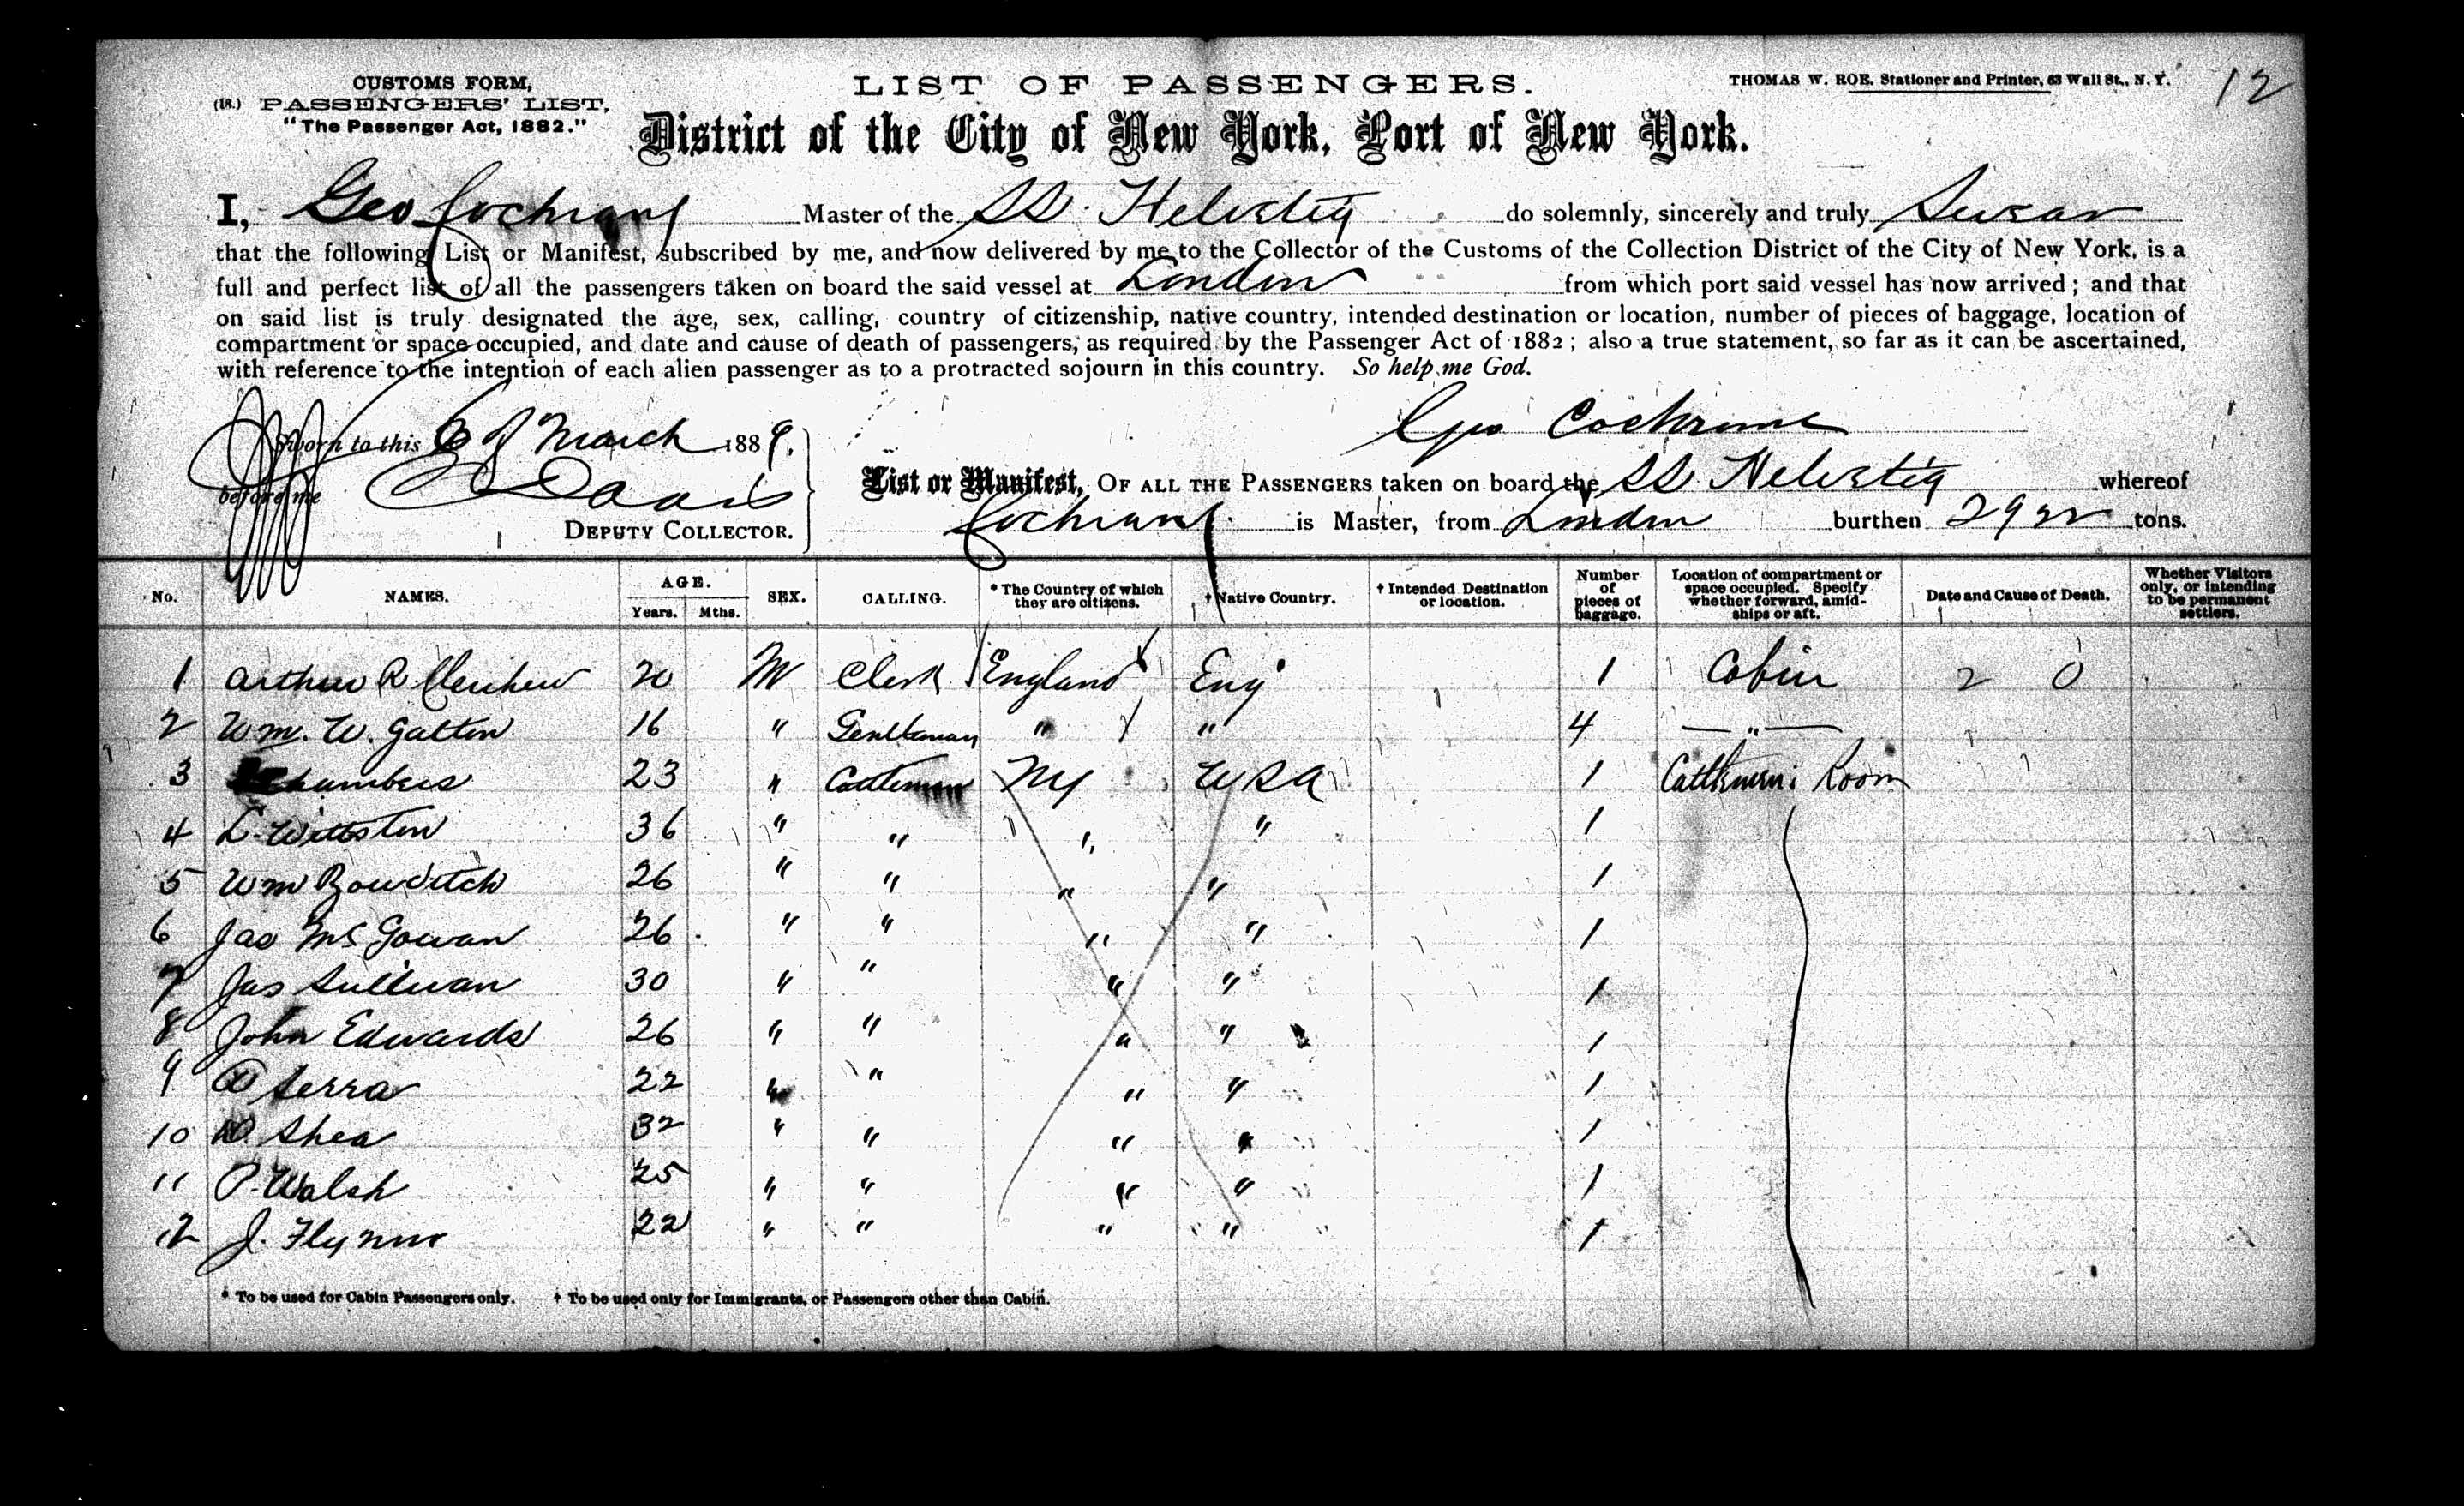 12
CUSTOMS FORM,
(18.) PASSENGERS' LIST,
"The Passenger Act, 1882."
LIST OF PASSENGERS.
THOMAS W. ROE, Stationer and Printer, 63 Wall St., N. Y.
District of the City of New York, Port of New York.
I, Geo Cochrane Master of the SS. Helvetia do solemnly, sincerely and truly Swear
that the following List or Manifest, subscribed by me, and now delivered by me to the Collector of the Customs of the Collection District of the City of New York, is a
full and perfect list of all the passengers taken on board the said vessel at London from which port said vessel has now arrived; and that
on said list is truly designated the age, sex, calling, country of citizenship, native country, intended destination or location, number of pieces of baggage, location of
compartment or space occupied, and date and cause of death of passengers, as required by the Passenger Act of 1882; also a true statement, so far as it can be ascertained,
with reference to the intention of each alien passenger as to a protracted sojourn in this country. So help me God.
Geo Cochrane
Sworn to this 6 of March 1889.
before me
Davis
DEPUTY COLLECTOR.
List or Manifest, OF ALL THE PASSENGERS taken on board the SS Helvetia whereof
Cochrane is Master, from London burthen tons.
No. NAMES. AGE. Years. Mths. SEX. CALLING. * The Country of which they are citizens. † Native Country. † Intended Destination or location. Number of pieces of baggage. Location of compartment or space occupied. Specify whether forward, amidships or aft. Date and Cause of Death. Whether Visitors only, or intending to be permanent settlers.
1 Arthur R Clerihew 20 M Clerk England Eng 1 Cabin 2 0
2 Wm. W. Galton 16 " Gentleman " " 4 — " —
3 Chambers 23 " Cattleman NY USA 1 Cattlemens Room
4 L. Wittston 36 " " " " 1
5 Wm Bowditch 26 " " " " 1
6 Jas McGowan 26 " " " " 1
7 Jas Sullivan 30 " " " " 1
8 John Edwards 26 " " " " 1
9 Serra 22 " " " " 1
10 D. Shea 32 " " " " 1
11 P. Walsh 25 " " " " 1
12 J. Flynn 22 " " " " 1
* To be used for Cabin Passengers only. † To be used only for Immigrants, or Passengers other than Cabin.